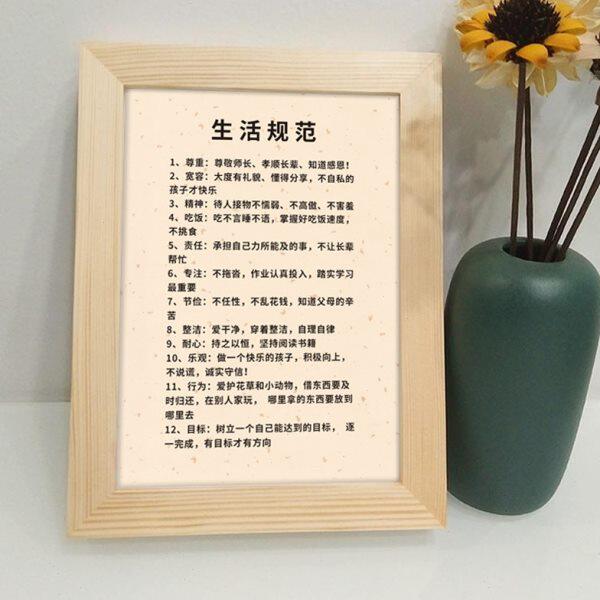 生活规范
1、尊重：尊敬师长、孝顺长辈、知道感恩！
2、宽容：大度有礼貌、懂得分享，不自私的
孩子才快乐
3、精神：待人接物不懦弱、不高傲、不害羞
4、吃饭：吃不言睡不语，掌握好吃饭速度，
不挑食
5、责任：承担自己力所能及的事，不让长辈
帮忙
6、专注：不拖沓，作业认真投入，踏实学习
最重要
7、节俭：不任性，不乱花钱，知道父母的辛
苦
8、整洁：爱干净，穿着整洁，自理自律
9、耐心：持之以恒，坚持阅读书籍
10、乐观：做一个快乐的孩子，积极向上，
不说谎，诚实守信！
11、行为：爱护花草和小动物，借东西要及
时归还，在别人家玩， 哪里拿的东西要放到
哪里去
12、目标：树立一个自己能达到的目标， 逐
一完成，有目标才有方向